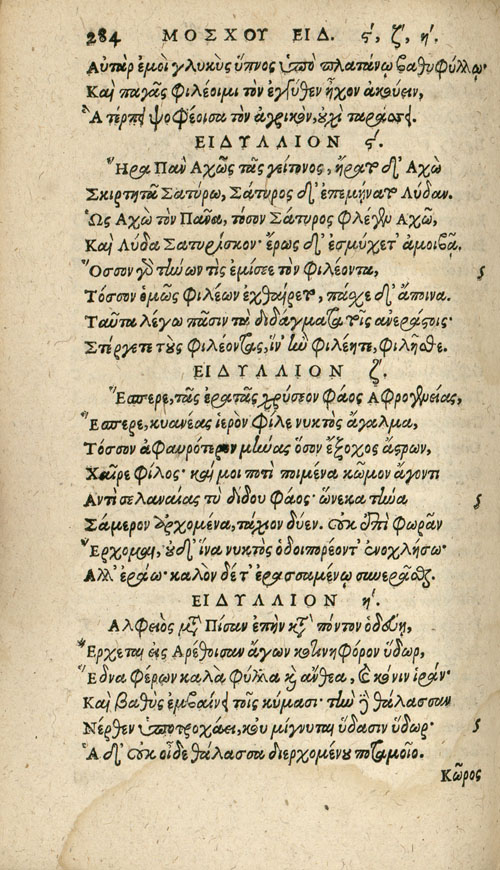 284 ΜΟΣΧΟΥ ΕΙΔ. ϛʹ, ζʹ, ηʹ.
Αὐτὰρ ἐμοὶ γλυκὺς ὕπνος ὑπὸ πλατάνῳ βαθυφύλλῳ·
Καὶ παγᾶς φιλέοιμι τὸν ἐγγύθεν ἦχον ἀκούειν,
Ἃ τέρπει ψοφέοισα τὸν ἀγρικὸν, οὐχὶ ταράσσει.
ΕΙΔΥΛΛΙΟΝ ϛʹ.
Ἤρα Πὰν Ἀχῶς τᾶς γείτονος, ἤρατο δ' Ἀχὼ
Σκιρτητᾶ Σατύρω, Σάτυρος δ' ἐπεμήνατο Λύδαν.
Ὡς Ἀχὼ τὸν Πᾶνα, τόσον Σάτυρος φλέγεν Ἀχῶ,
Καὶ Λύδα Σατυρίσκον· ἔρως δ' ἐσμύχετ' ἀμοιβᾷ.
Ὅσσον γὸ τήνων τὶς ἐμίσεε τὸν φιλέοντα, 5
Τόσσον ὁμῶς φιλέων ἐχθαίρετο, πάσχε δ' ἄποινα.
Ταῦτα λέγω πᾶσιν τὰ διδάγματα τοῖς ἀνεράστοις·
Στέργετε τοὺς φιλέοντας, ἵν' ἢν φιλέητε, φιλῆσθε.
ΕΙΔΥΛΛΙΟΝ ζʹ.
Ἕσπερε, τᾶς ἐρατᾶς χρύσεον φάος Ἀφρογενείας,
Ἕσπερε, κυανέας ἱερὸν φίλε νυκτὸς ἄγαλμα,
Τόσσον ἀφαυρότερον μήνας ὅσον ἔξοχος ἄστρων,
Χαῖρε φίλος· καί μοι ποτὶ ποιμένα κῶμον ἄγοντι
Ἀντὶ σελαναίας τὺ δίδου φάος· ὥνεκα τήνα 5
Σάμερον ἀρχομένα, τάχιον δύεν. οὐκ ἐπὶ φωρὰν
Ἔρχομαι, οὐδ' ἵνα νυκτὸς ὁδοιπορέοντ' ἐνοχλήσω·
Ἀλλ' ἐράω· καλὸν δέ τ' ἐρασσαμένῳ συνερᾶσθαι.
ΕΙΔΥΛΛΙΟΝ ηʹ.
Ἀλφειὸς μετὰ Πίσαν ἐπὴν κατὰ πόντον ὁδεύῃ,
Ἔρχεται εἰς Ἀρέθοισαν ἄγων κοτινηφόρον ὕδωρ,
Ἕδνα φέρων καλὰ φύλλα καὶ ἄνθεα, καὶ κόνιν ἱράν·
Καὶ βαθὺς ἐμβαίνει τοῖς κύμασι· τὴν δὲ θάλασσαν
Νέρθεν ὑποτροχάει, κοὐ μίγνυται ὕδασιν ὕδωρ· 5
Ἁ δ' οὐκ οἶδε θάλασσα διερχομένου ποταμοῖο.
Κῶρος